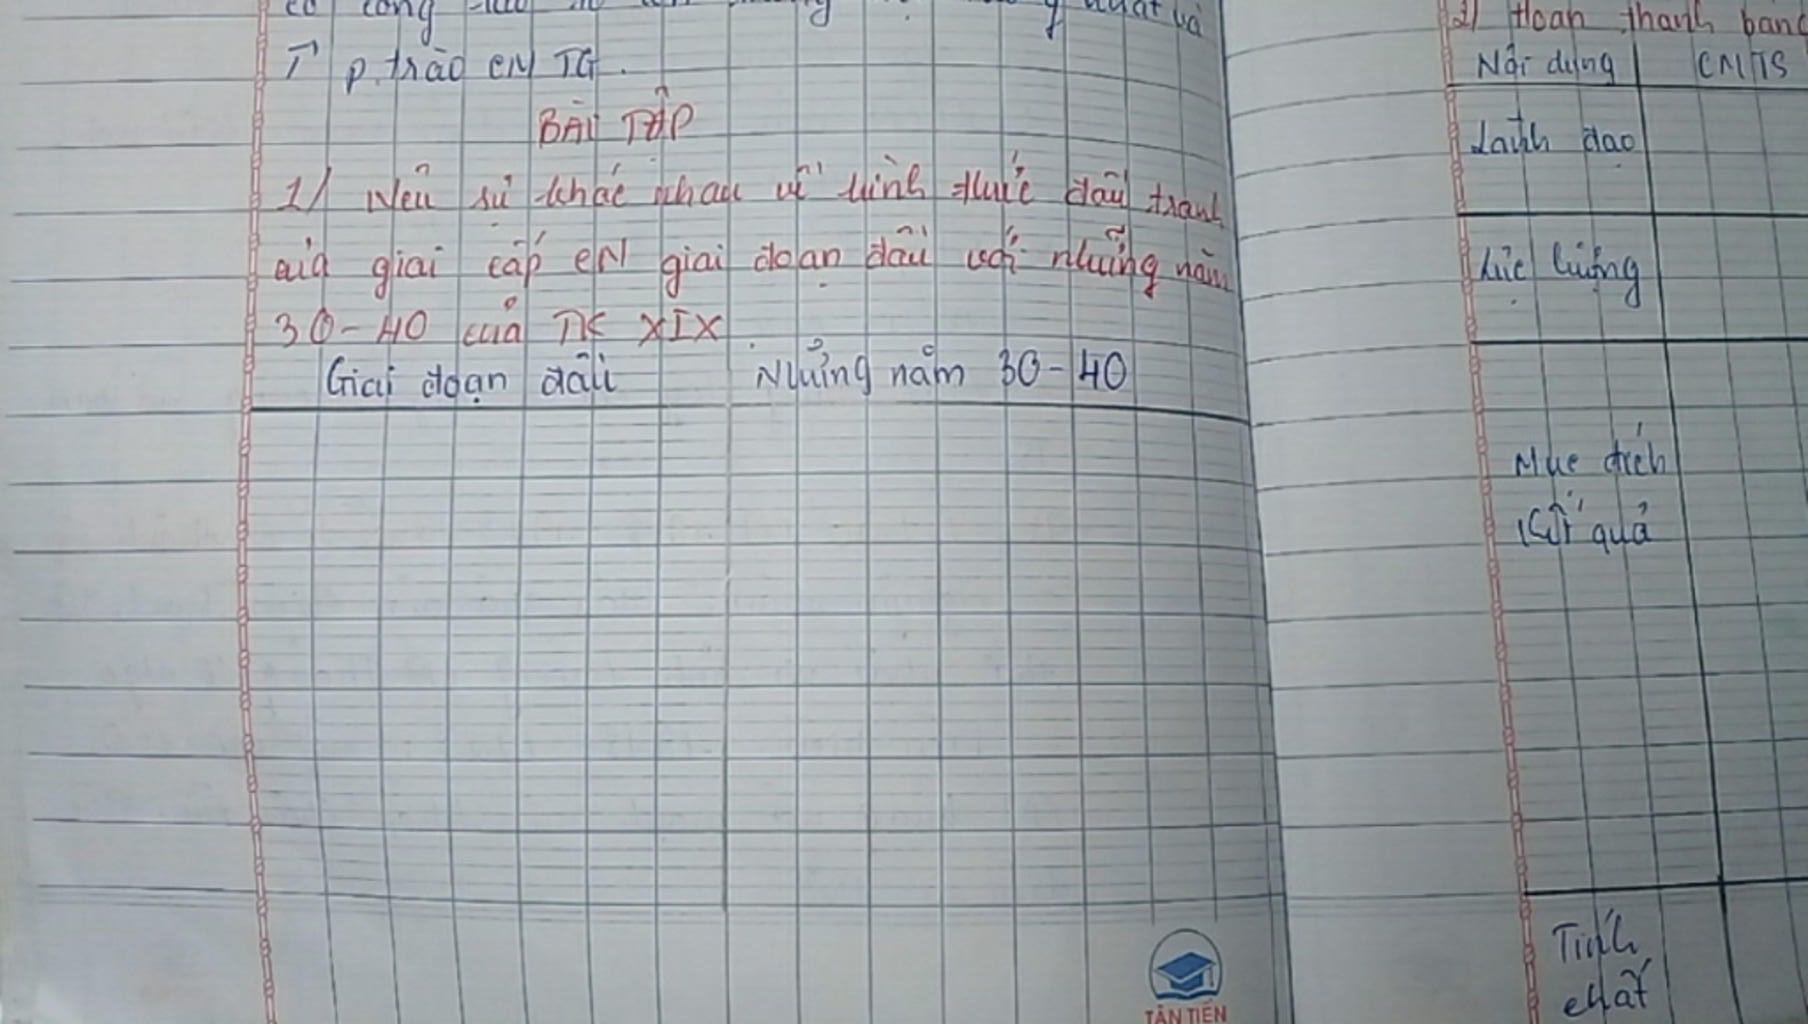 T P. trào CN TG.
BÀI TẬP
1/ Nêu sự khác nhau về hình thức đấu tranh
của giai cấp CN giai đoạn đầu với những năm
30-40 của TK XIX.
Giai đoạn đầu Những năm 30-40
2/ Hoàn thành bảng
Nội dung CMTS
Lãnh đạo
Lực lượng
Mục đích
Kết quả
Tính
chất
TÂN TIẾN